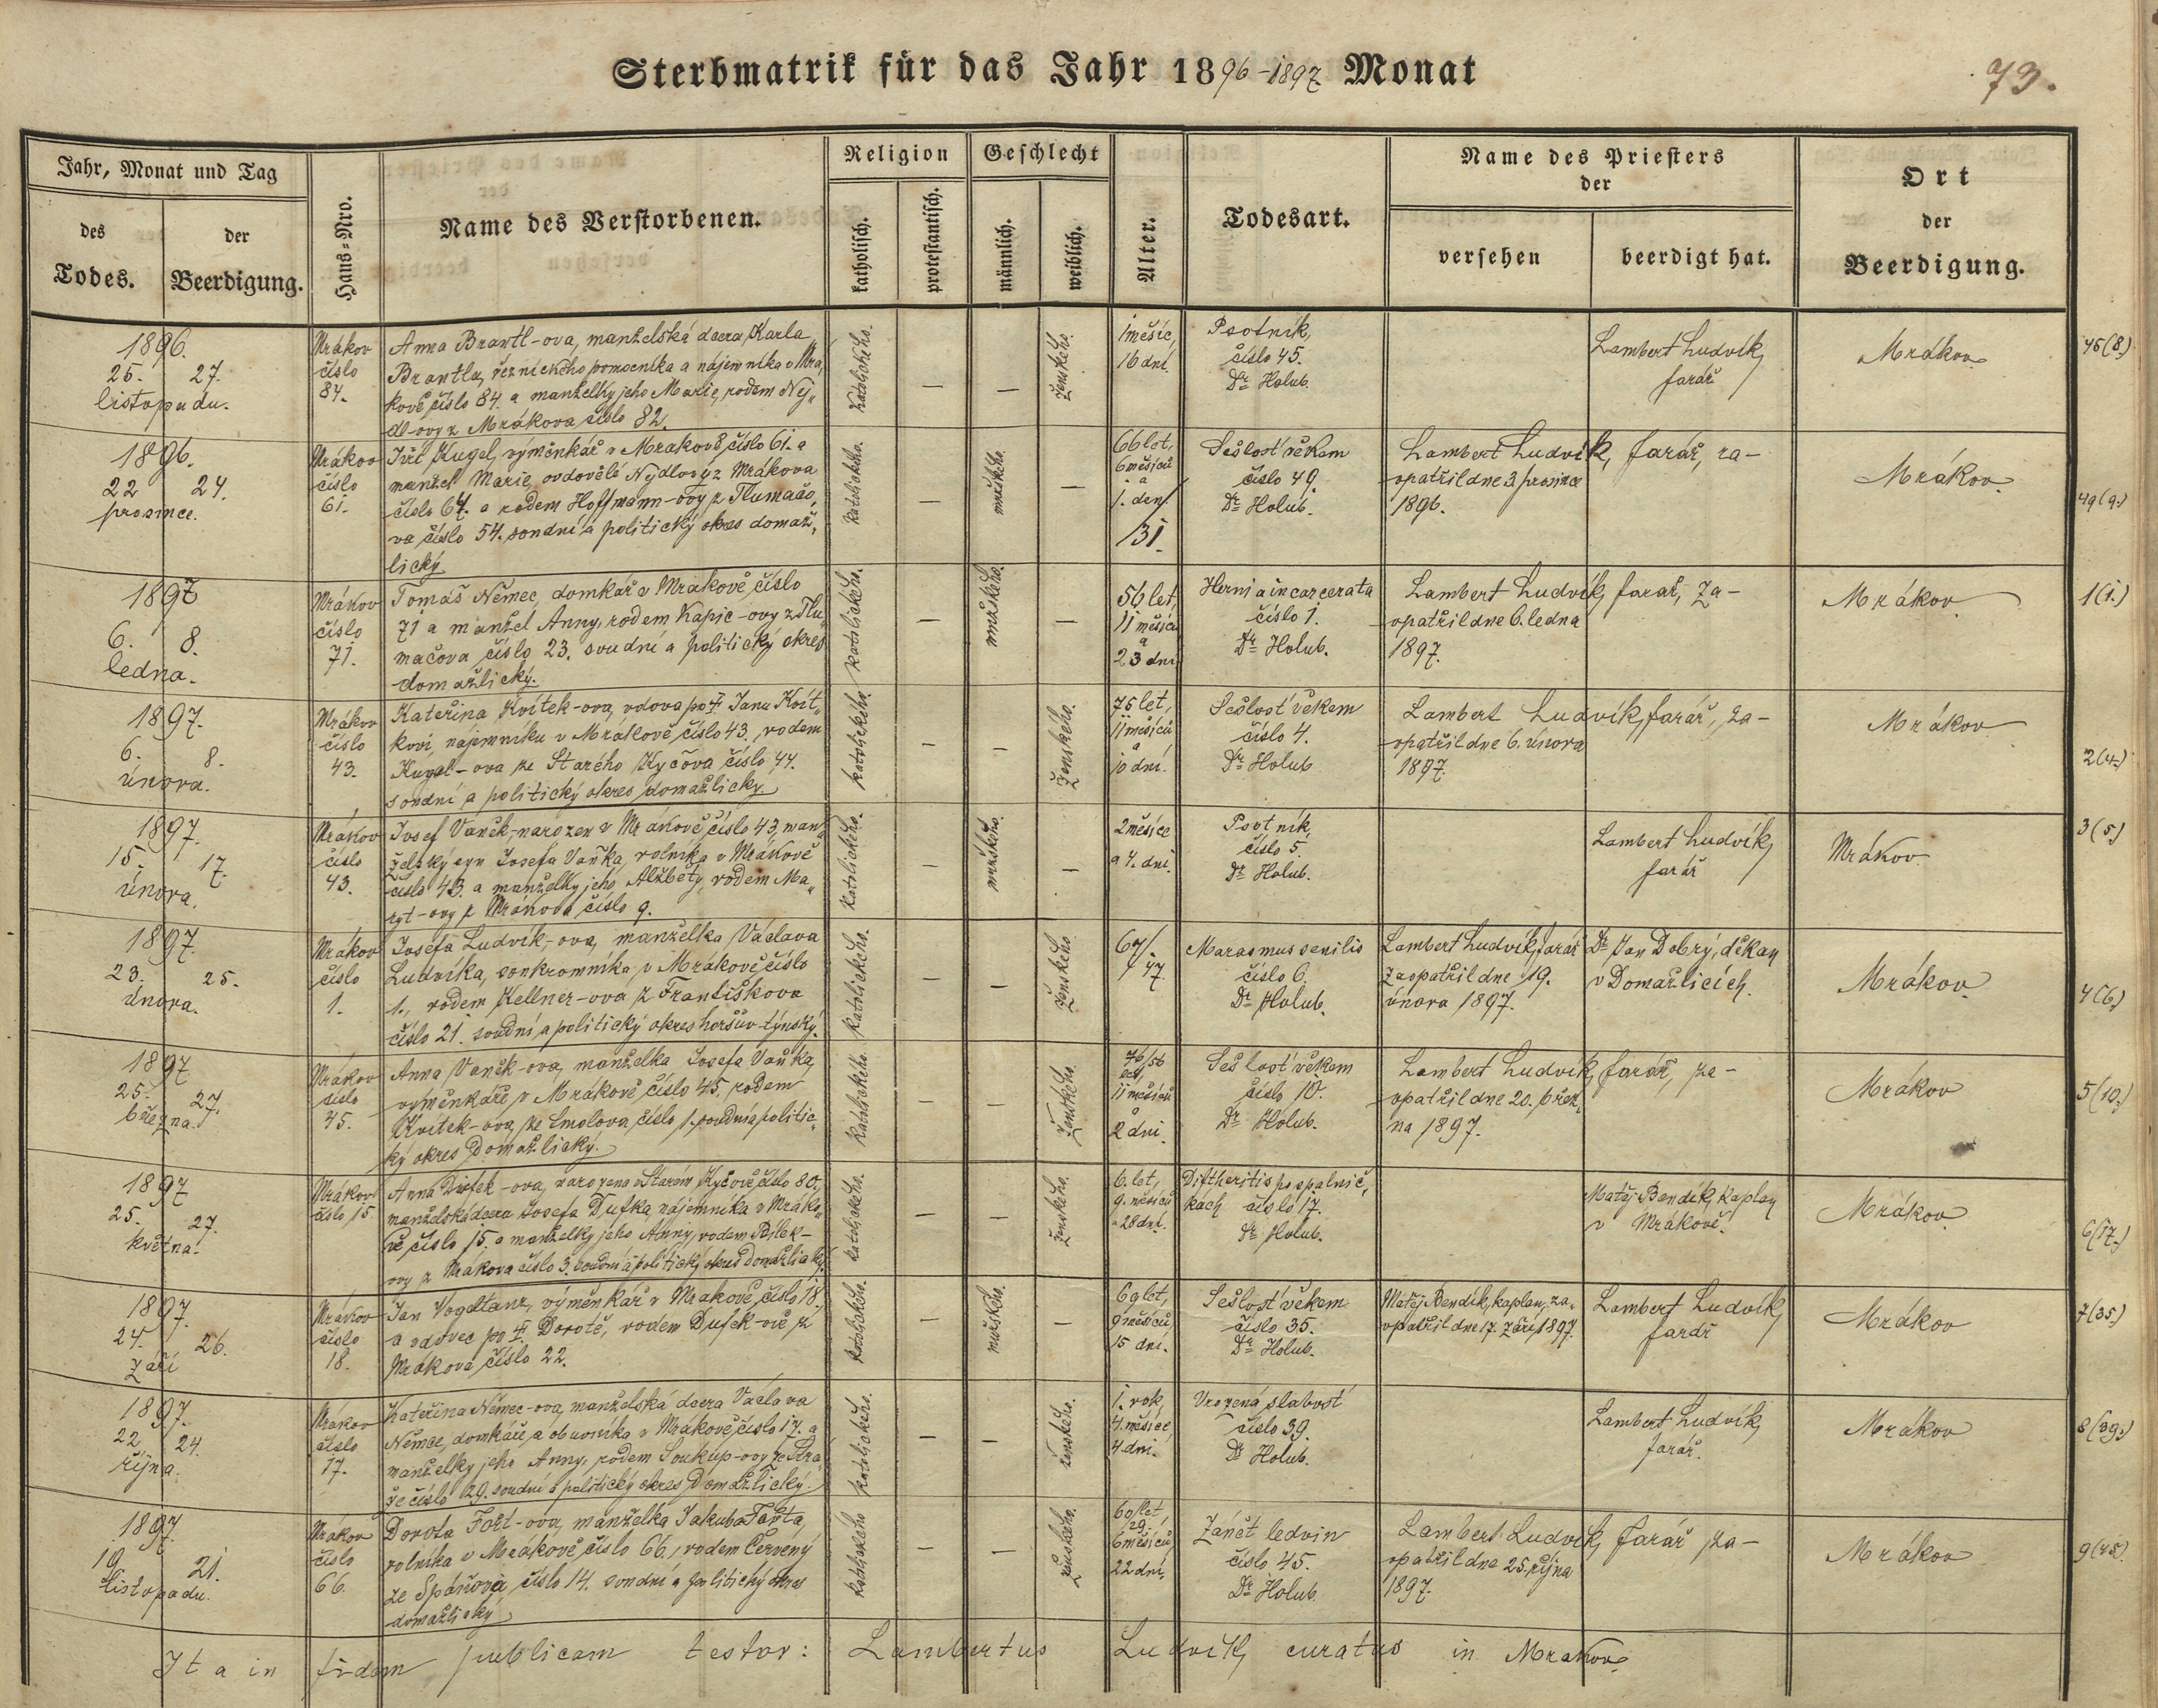 Sterbmatrik für das Jahr 1896-1897 Monat
73.
Jahr, Monat und Tag
des Todes.
der Beerdigung.
Haus-Nro.
Name des Verstorbenen.
Religion
katholisch.
protestantisch.
Geschlecht
männlich.
weiblich.
Alter.
Todesart.
Name des Priesters
der
versehen
beerdigt hat.
Ort
der
Beerdigung.
1896.
25. 27.
listopadu.
Mrákov
číslo
84.
Anna Brantl-ova, manželská dcera Karla
Brantla, řeznického pomocníka a nájemníka v Mrá„
kově číslo 84. a manželky jeho Marie, rodem Nej„
dl-ovy z Mrákova číslo 82.
Katolického.
—
—
Ženského.
1 měsíc,
16 dní.
Psotník,
číslo 45.
Dr Holub.
Lambert Ludvík,
farář
Mrákov
45(8.)
1896.
22 24.
prosince.
Mrákov
číslo
61.
Jiří Kugel, výměnkář v Mrakově číslo 61. a
manžel Marie, ovdovělé Nydlovy z Mrákova
číslo 64. a rodem Hoffmann-ovy z Tlumačo„
va číslo 54. soudní a politický okres domaž„
lický
katolického.
—
mužského.
—
66 let,
6 měsíců
a
1. den
131.
Sešlosť věkem
číslo 49.
Dr Holub.
Lambert Ludvík, farář, za-
opatřil dne 3. prosince
1896.
Mrákov.
49(9.)
1897
6. 8.
ledna.
Mrákov
číslo
71.
Tomáš Němec, domkář v Mrakově číslo
71 a manžel Anny, rodem Kapic-ovy z Tlu„
mačova číslo 23. soudní a politický okres
domažlický.
katolického.
—
mužského.
—
56 let,
11 měsíců
a
23 dní
Hernia incarcerata
číslo 1.
Dr Holub.
Lambert Ludvík, farář, za-
opatřil dne 6. ledna
1897.
Mrákov
1(1.)
1897.
6. 8.
února.
Mrákov
číslo
43.
Kateřina Kvítek-ova, vdova po † Janu Kvít„
kovi, nájemníku v Mrákově číslo 43., rodem
Kugel-ova ze Starého Kyčova číslo 44.
soudní a politický okres domažlický.
katolického.
—
—
Ženského.
75 let,
11 měsíců
a
10 dní.
Sešlosť věkem
číslo 4.
Dr Holub
Lambert Ludvík, farář, za-
opatřil dne 6. února
1897.
Mrákov
2(4.)
1897.
15. 17.
února.
Mrákov
číslo
43.
Josef Vaněk, narozen v Mrákově číslo 43, man„
želský syn Josefa Vaňka, rolníka v Mrákově
číslo 43. a manželky jeho Alžběty, rodem Ma„
zyt-ovy z Mrákova číslo 9.
katolického.
—
mužského.
—
2 měsíce
a 4. dni.
Psotník
číslo 5.
Dr Holub.
Lambert Ludvík,
farář
Mrákov.
3(5.)
1897.
23. 25.
února.
Mrákov
číslo
1.
Josefa Ludvík-ova, manželka Václava
Ludvíka, soukromníka v Mrákově číslo
1., rodem Kellner-ova z Františkova
číslo 21. soudní a politický okres horšův-týnský.
katolického.
—
—
Ženského.
67/.
47.
Marasmus senilis
číslo 6.
Dr Holub.
Lambert Ludvík, farář
zaopatřil dne 19.
února 1897.
Dr Jan Dobrý, děkan
v Domažlicích.
Mrákov.
4(6.)
1897
25. 27.
března.
Mrákov
číslo
45.
Anna Vaněk-ova, manželka Josefa Vaňka,
výměnkáře v Mrákově číslo 45, rodem
Kvítek-ova ze Smolova číslo 1. soudní a politic„
ký okres Domažlický.
katolického.
—
—
Ženského.
76/56
let,
11 měsíců
a
2 dni.
Sešlosť věkem
číslo 10.
Dr Holub.
Lambert Ludvík, farář, za-
opatřil dne 20. břez„
na 1897.
Mrákov
5(10.)
1897
25. 27.
května.
Mrákov
číslo 15
Anna Dufek-ova, narozena v Starém Kyčově číslo 80.
manželská dcera Josefa Dufka, nájemníka v Mráko„
vě číslo 15. a manželky jeho Anny, rodem Pílek-
ovy z Mrákova číslo 3. soudní a politický okres Domažlický.
katolického.
—
—
Ženského.
6. let,
9. měsíců
a 28 dní.
Diftheritis po spalnič„
kách číslo 17.
Dr Holub.
Matěj Bendík, kaplan
v Mrákově.
Mrákov
6(17.)
1897.
24. 26.
Září
Mrákov
číslo
18.
Jan Vogeltanz, výměnkář v Mrakově číslo 18.
a vdovec po † Dorotě, rodem Dufek-ové z
Mrákova číslo 22.
katolického.
—
mužského.
—
69 let,
9 měsíců
15 dní.
Sešlosť věkem
číslo 35.
Dr Holub.
Matěj Bendík, kaplan, za„
opatřil dne 17. Září 1897.
Lambert Ludvík,
farář
Mrákov
7(35.)
1897.
22. 24.
října.
Mrákov
číslo
17.
Kateřina Němec-ova, manželská dcera Václava
Němce, domkáře a obuvníka v Mrákově číslo 17. a
manželky jeho Anny, rodem Soukup-ovy ze Stra„
že číslo 29. soudní a politický okres Domažlický.
katolického.
—
—
ženského.
1. rok,
4. měsíce,
4 dni.
Vrozená slabosť
číslo 39.
Dr Holub.
Lambert Ludvík,
farář.
Mrákov
8(39.)
1897.
19 21.
listopadu.
Mrákov
číslo
66.
Dorota Fořt-ova, manželka Jakuba Fořta,
rolníka v Mrákově číslo 66., rodem Červený
ze Spáňova číslo 14. soudní a politický okres
domažlický
katolického
—
—
ženského.
60 let,
/29.
6 měsíců
22 dní,
Zánět ledvin
číslo 45.
Dr Holub.
Lambert Ludvík, farář za-
opatřil dne 25. října
1897.
Mrákov
9(45.)
Ita in fidem publicam testor: Lambertus Ludvík, curatus in Mrakov.